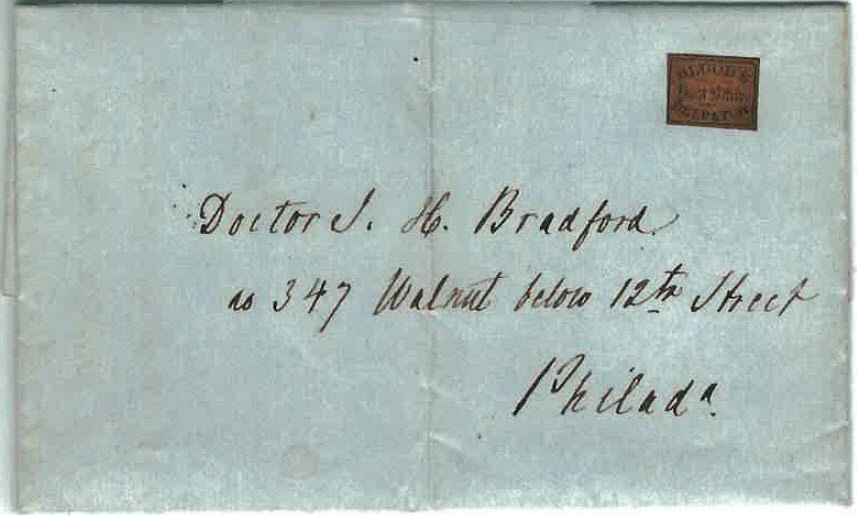 BLOOD'S
DESPATCH
Doctor J. H. Bradford
no 347 Walnut below 12th Street
Philada.